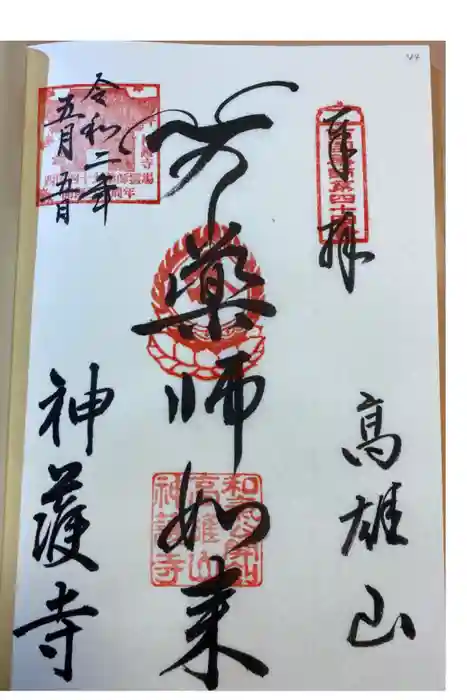 奉拝
高雄山
薬師如来
令和二年
五月五日
神護寺
和気公霊廟
高雄山
神護寺